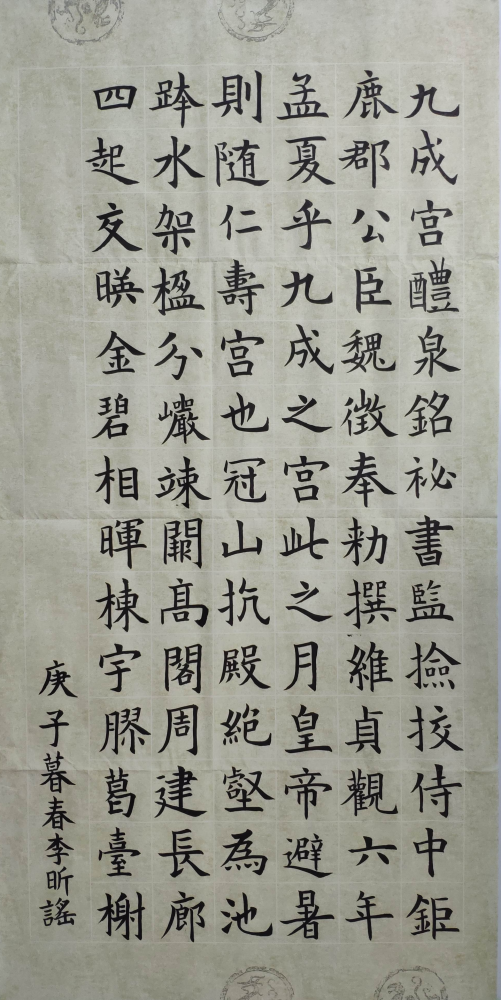 九成宫醴泉銘祕書監撿挍侍中鉅
鹿郡公臣魏徵奉勑撰維貞觀六年
孟夏乎九成之宫此之月皇帝避暑
則随仁壽宫也冠山抗殿絶壑為池
跨水架楹分巗竦闕高閣周建長廊
四起交暎金碧相暉棟宇膠葛臺榭
庚子暮春李昕謠